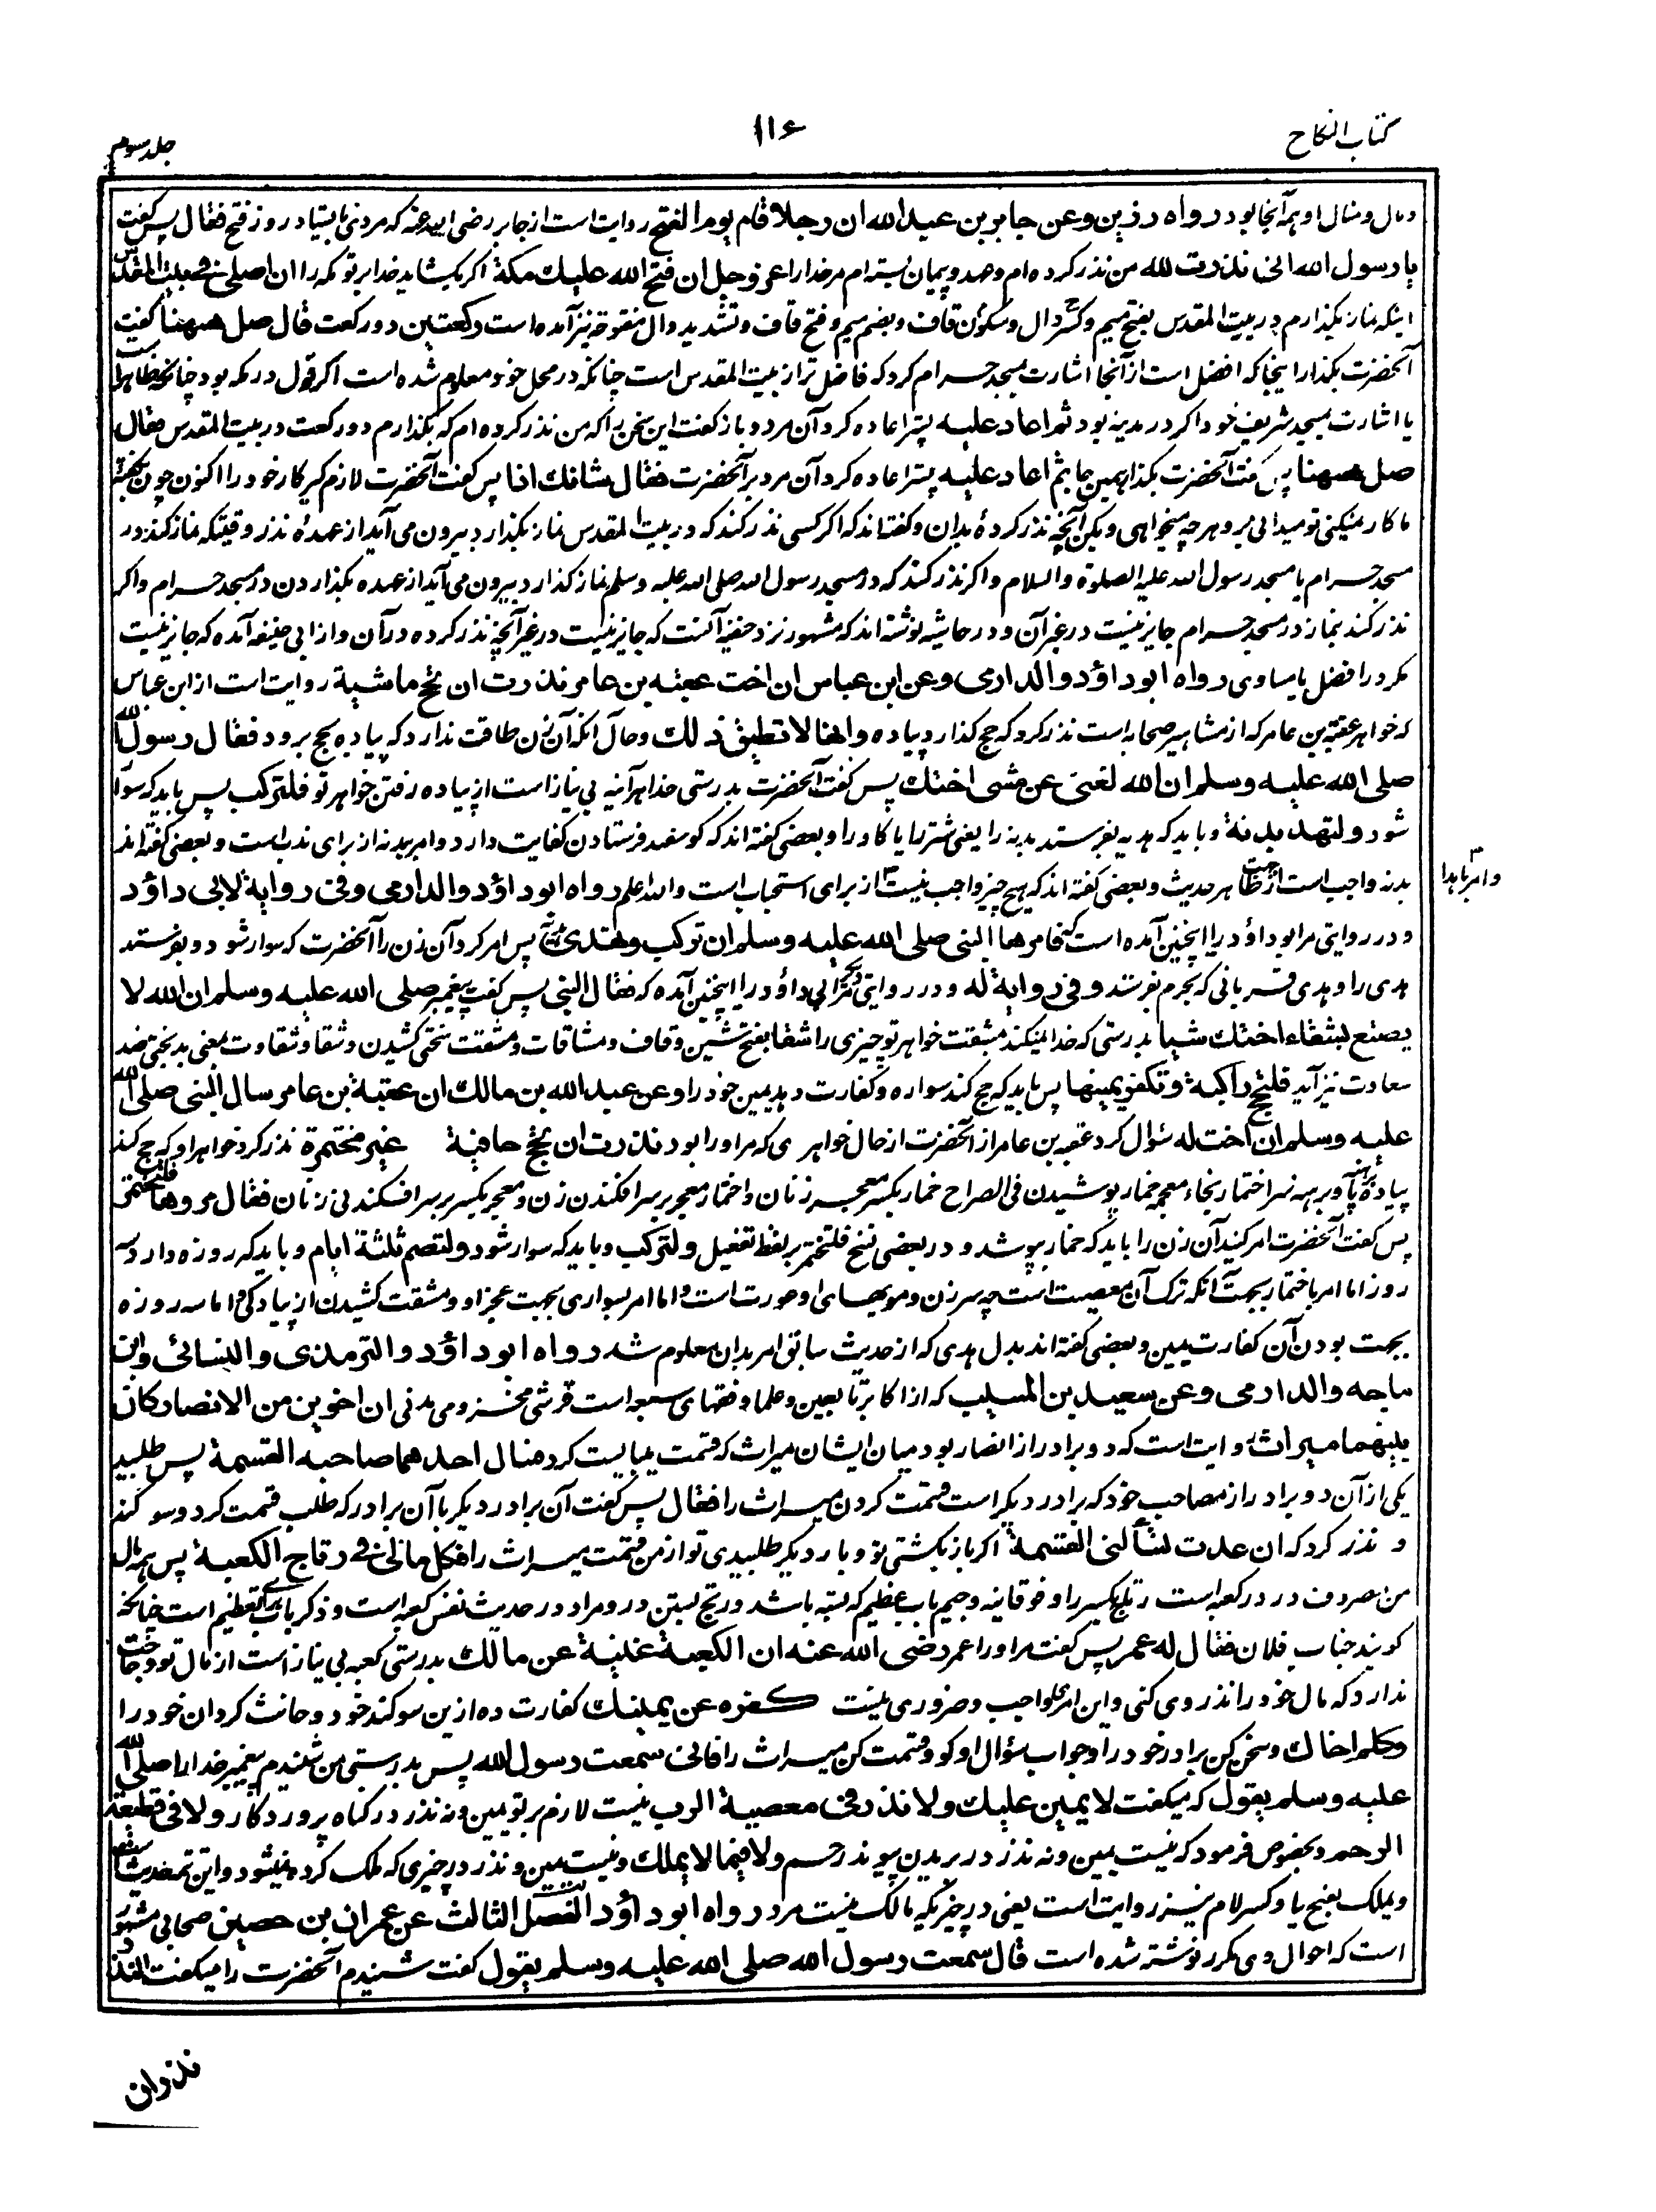 کتاب النکاح
۱۱۶
جلد سوم
و مال و منال او همه آنجا بود رواه رزین وعن جابر بن عبد الله ان رجلا قام یوم الفتح روایت است از جابر رضی الله عنه که مردی بایستاد روز فتح فقال پس گفت
یا رسول الله انی نذرت لله من نذر کرده ام وعهد و پیمان بسته ام مر خدا را عز وجل ان فتح الله علیك مکة اکر بکشاید خدا بر تو مکه را ان اصلی فی بیت المقدس
اینکه نماز بکذارم در بیت المقدس بفتح میم و کسر دال و سکون قاف و بضم میم و فتح قاف و تشدید دال مفتوحه نیز آمده است رکعتین دو رکعت قال صل ههنا گفت
آنحضرت بکذار اینجا که افضل است از آنجا اشارت بمسجد حرام کرد که فاضل تر از بیت المقدس است چنانکه در محل خود معلوم شده است اکر قول در مکه بود چنانچه ظاهر است
یا اشارت بمسجد شریف خود اکر در مدینه بود ثم اعاد علیه پستر اعاده کرد آن مرد و باز کفت این سخن را که من نذر کرده ام که بکذارم دو رکعت در بیت المقدس فقال
صل ههنا پس گفت آنحضرت بکذار همین جا ثم اعاد علیه پستر اعاده کرد آن مرد بر آنحضرت فقال شانك اذا پس کفت آنحضرت لازم کیر کار خود را اکنون چون بکفته
ما کار نمیکنی تو میدانی برو هر چه میخواهی و بکن آنچه نذر کرده بدان و کفته اند که اکر کسی نذر کند که در بیت المقدس نماز بکذارد بیرون می آید از عهده نذر وقتیکه نماز کند در
مسجد حرام یا مسجد رسول الله علیه الصلوة والسلام و اکر نذر کند که در مسجد رسول الله صلی الله علیه وسلم نماز کذارد بیرون می آید از عهده بکذاردن در مسجد حرام و اکر
نذر کند بنماز در مسجد حرام جایز نیست در غیر آن و در حاشیه نوشته اند که مشهور نزد حنفیه آنست که جایز نیست در غیر آنچه نذر کرده در آن و از ابی حنیفه آمده که جایز نیست
مکر در افضل یا مساوی رواه ابو داؤد والدارمی وعن ابن عباس ان اخت عقبة بن عامر نذرت ان تحج ماشیة روایت است از ابن عباس
که خواهر عقبة بن عامر که از مشاهیر صحابه است نذر کرد که حج کذارد پیاده وانها لا تطیق ذلك و حال آنکه آن زن طاقت ندارد که پیاده بحج برود فقال رسول الله
صلی الله علیه وسلم ان الله لغنی عن مشی اختك پس کفت آنحضرت بدرستی خدا هر آینه بی نیاز است از پیاده رفتن خواهر تو فلترکب پس باید که سوار
شود ولتهد بدنة و باید که هدیه بفرستد بدنه را یعنی شتر را یا کاو را و بعضی کفته اند که کوسفند فرستادن کفایت دارد و امر ببدنه از برای ندب است و بعضی کفته اند
بدنه واجب است از جهت ظاهر حدیث و بعضی کفته اند که هیچ چیز واجب نیست از برای استحباب است والله اعلم رواه ابو داؤد والدارمی وفی روایة لابی داؤد
و امر باهدا
و در روایتی مر ابو داؤد را اینچنین آمده است که فامرها النبی صلی الله علیه وسلم ان ترکب وتهدی هدیا پس امر کرد آن زن را آنحضرت که سوار شود و بفرستد
هدی را و هدی قربانی که بحرم بفرستند وفی روایة له و در روایتی دیگر مر ابی داؤد را اینچنین آمده که فقال النبی پس کفت پیغمبر صلی الله علیه وسلم ان الله لا
یصنع بشقاء اختك شیئا بدرستی که خدا نمیکند بمشقت خواهر تو چیزی را شقا بفتح شین و قاف و مشاقات و مشقت سختی کشیدن و شقا و شقاوت بمعنی بدبختی ضد
سعادت نیز آید فلتحج راکبة وتکفر یمینها پس باید که حج کند سواره و کفارت دهد یمین خود را وعن عبد الله بن مالك ان عقبة بن عامر سال النبی صلی الله
علیه وسلم ان اخت له سؤال کرد عقبه بن عامر از آنحضرت از حال خواهری که مر او را بود نذرت ان تحج حافیة غیر مختمرة نذر کرد خواهر او که حج کند
پیاده برهنه پا و برهنه سر اختمار بخاء معجمه خمار پوشیدن فی الصراح خمار بکسر معجر زنان و اختمار معجر بر سر افکندن زن و معجر بکسر بر سر افکندنی زنان فقال مروها فلتختمر
پس کفت آنحضرت امر کنید آن زن را باید که خمار بپوشد و در بعضی نسخ فلتخمر بلفظ تفعیل ولترکب و باید که سوار شود ولتصم ثلثة ایام و باید که روزه دارد سه
روز اما امر باختمار بجهت آنکه ترک آن معصیت است چه سر زن و مویهای او عورت است و اما امر بسواری بجهت عجز او و مشقت کشیدن از پیادکی و اما سه روزه
بجهت بودن آن کفارت یمین و بعضی کفته اند بدل هدی که از حدیث سابق امر بدان معلوم شد رواه ابو داؤد والترمذی والنسائی وابن
ماجه والدارمی وعن سعید بن المسیب که از اکابر تابعین و علما و فقهای سبعه است قرشی مخزومی مدنی ان اخوین من الانصار کان
بینهما میراث روایت است که دو برادر از انصار بود میان ایشان میراث که قسمت میبایست کرد فسال احدهما صاحبه القسمة پس طلبید
یکی از آن دو برادر از مصاحب خود که برادر دیکر است قسمت کردن میراث را فقال پس کفت آن برادر دیکر با آن برادر که طلب قسمت کرد و سوکند
و نذر کرد که ان عدت تسألنی القسمة اکر باز بکشتی تو و بار دیکر طلبیدی تو از من قسمت میراث را فکل مالی فی رتاج الکعبة پس همه مال
من مصروف در در کعبه است رتاج بکسر را و فوقانیه و جیم باب عظیم که بسته باشد و رتج بستن در و مراد در حدیث نفس کعبه است و ذکر باب برای تعظیم است چنانکه
کویند جناب فلان فقال له عمر پس کفت مر او را عمر رضی الله عنه ان الکعبة غنیة عن مالك بدرستی کعبه بی نیاز است از مال تو و حاجت
ندارد که مال خود را نذر وی کنی و این امر واجب و ضروری نیست کفر عن یمینك کفارت ده ازین سوکند خود و حانث کردان خود را
وکلم اخاك و سخن کن برادر خود را و جواب سؤال او کو و قسمت کن میراث را فانی سمعت رسول الله پس بدرستی من شنیدم پیغمبر خدا را صلی الله
علیه وسلم یقول که میکفت لا یمین علیك ولا نذر فی معصیة الرب نیست لازم بر تو یمین و نه نذر در کناه پروردکار ولا فی قطیعة
الرحم و بخصوص فرمود که نیست یمین و نه نذر در بریدن پیوند رحم ولا فیما لا یملك و نیست یمین و نذر در چیزی که ملک کرده نمیشود و این تتمه حدیث است
و یملک بفتح یا و کسر لام نیز روایت است یعنی در چیزیکه مالک نیست مرد رواه ابو داؤد الفصل الثالث عن عمران بن حصین صحابی مشهور
است که احوال وی مکرر نوشته شده است قال سمعت رسول الله صلی الله علیه وسلم یقول کفت شنیدم آنحضرت را میکفت النذر
نذران